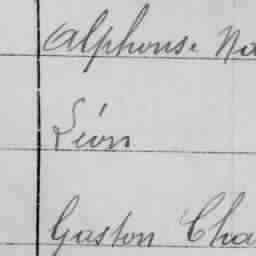 Alphonse Na
Léon
Gaston Cha